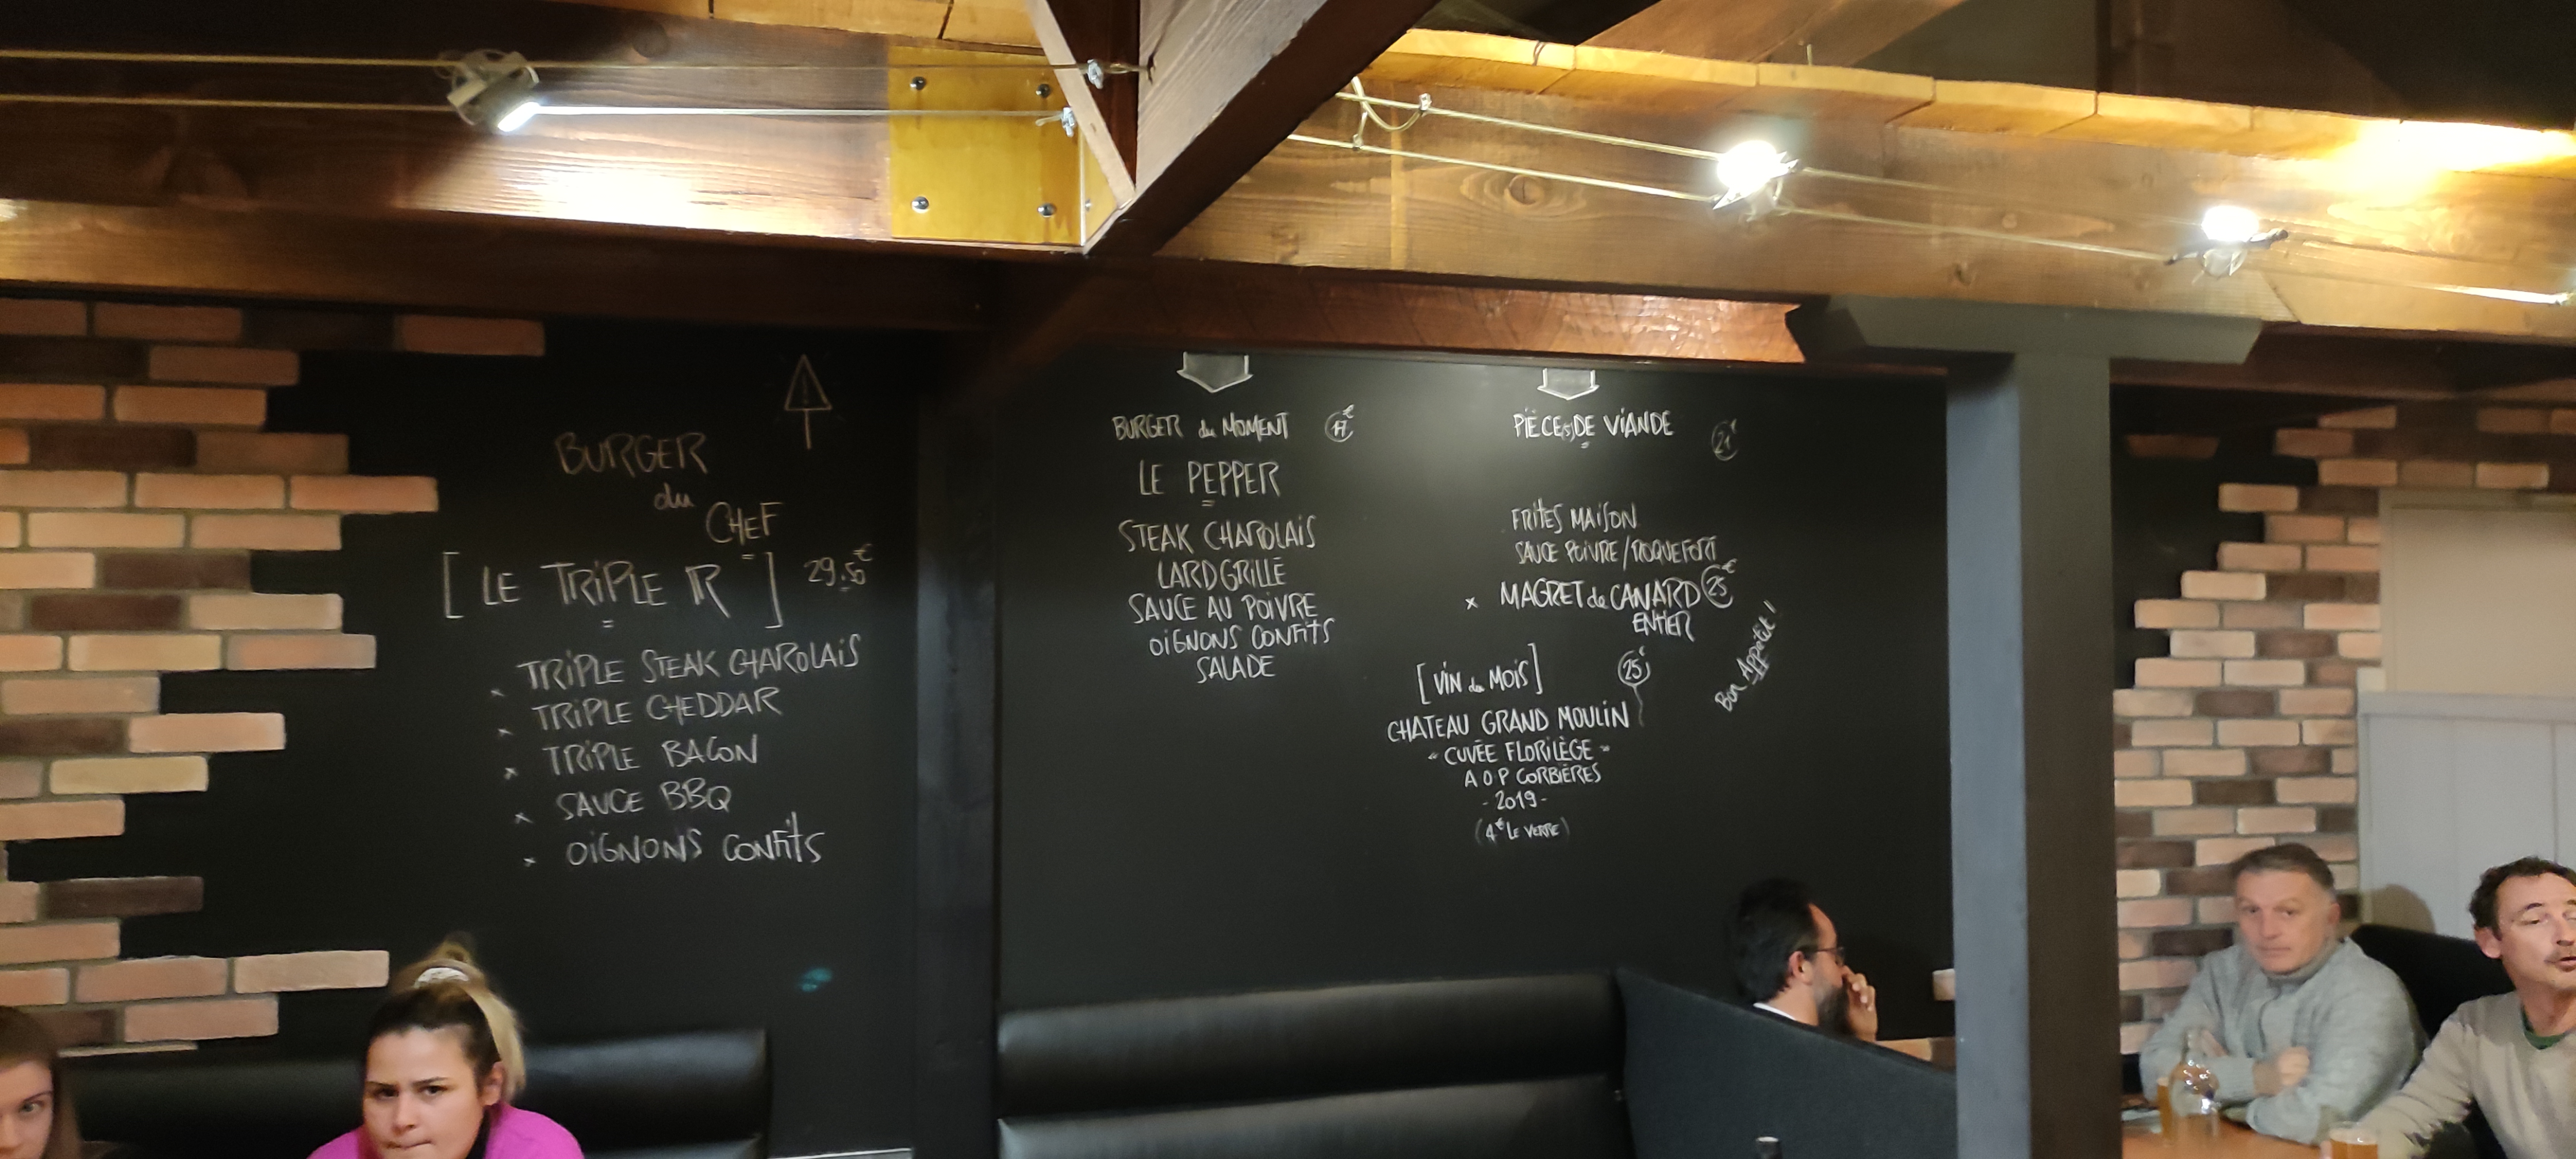 BURGER
du
CHEF
[ LE TRiPLE R ] 29.50€
x TRiPLE STEAK CHAROLAiS
x TRiPLE CHEDDAR
x TRiPLE BACON
x SAUCE BBQ
x OiGNONS CONFitS
BURGER du MOMENT 17€
LE PEPPER
STEAK CHAROLAiS
LARD GRiLLÉ
SAUCE AU POiVRE
OiGNONS CONFitS
SALADE
PiÈCE(S) DE ViANDE 21€
FRitES MAiSON
SAUCE POiVRE/ROQUEFORT
x MAGRET de CANARD 25€
ENtiER
[ViN du MOiS] 25€
CHATEAU GRAND MOULiN
"CUVÉE FLORiLÈGE"
A O P CORBiÈRES
- 2019 -
(4€ LE VERRE)
Bon Appétit !